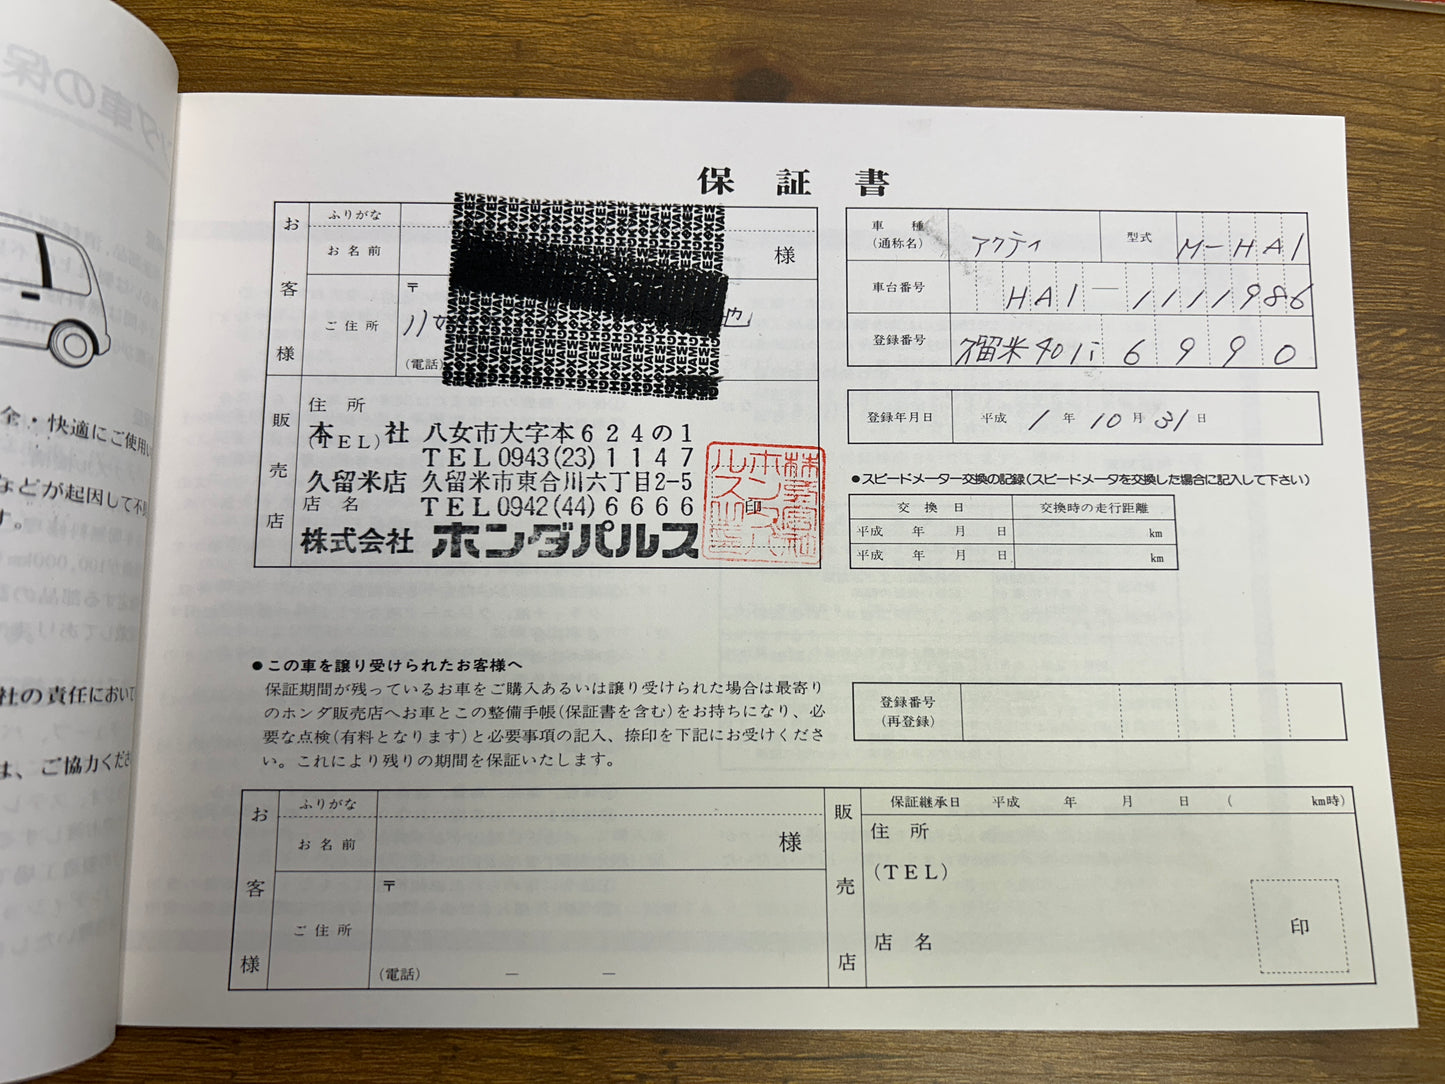 保証書
お客様
ふりがな
お名前
様
ご住所
〒
(電話)
販売店
住所
(TEL)
本社 八女市大字本624の1
TEL0943(23)1147
久留米店 久留米市東合川六丁目2-5
店名
TEL0942(44)6666
印
株式会社 ホンダパルス
車種
(通称名)
アクティ
型式
M-HA1
車台番号
HA1-1111986
登録番号
久留米40い6990
登録年月日
平成1年10月31日
●スピードメーター交換の記録(スピードメータを交換した場合に記入して下さい)
交換日
交換時の走行距離
平成 年 月 日 km
平成 年 月 日 km
●この車を譲り受けられたお客様へ
保証期間が残っているお車をご購入あるいは譲り受けられた場合は最寄り
のホンダ販売店へお車とこの整備手帳(保証書を含む)をお持ちになり、必
要な点検(有料となります)と必要事項の記入、捺印を下記にお受けくださ
い。これにより残りの期間を保証いたします。
登録番号
(再登録)
お客様
ふりがな
お名前
様
ご住所
〒
(電話) － －
販売店
保証継承日 平成 年 月 日 ( km時)
住所
(TEL)
店名
印
全・快適にご使用い
などが起因して不
す。
社の責任において
は、ご協力くださ